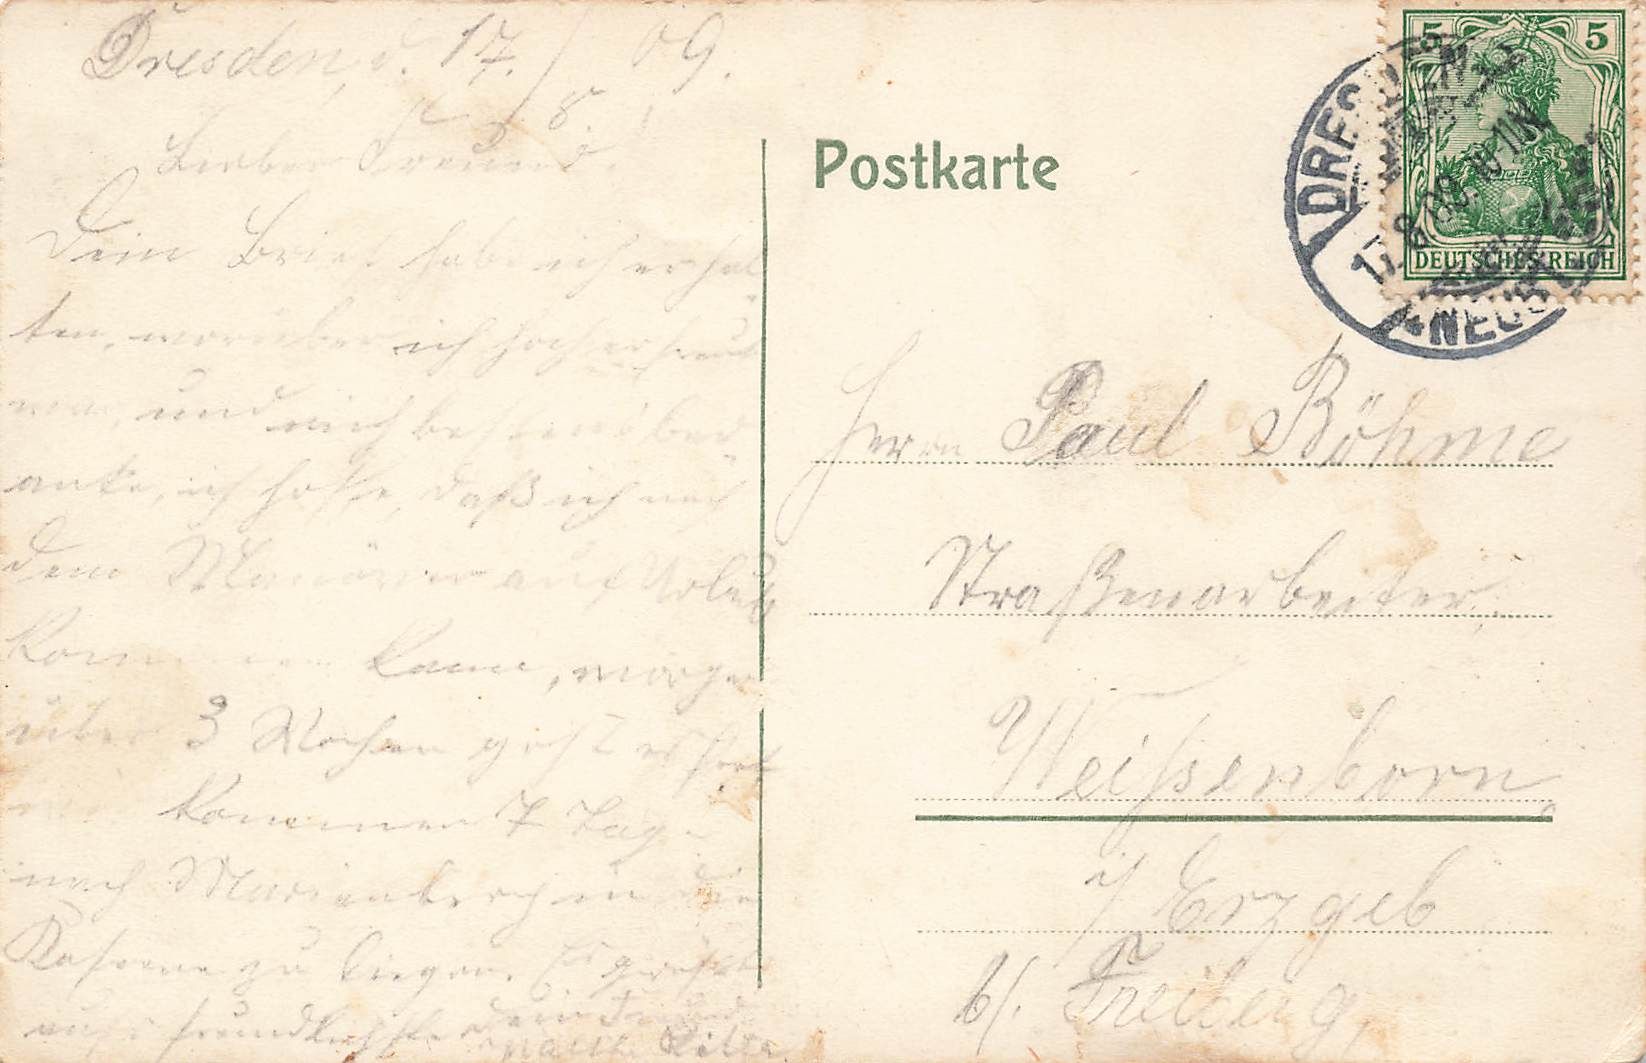 Dresden, d. 17./8. 09.
Lieber Freund
Dein Brief habe ich erhal
ten, worüber ich hocherfreut
war, und mich bestens bed
anke, ich hoffe, daß ich nach
dem Manöver auf Urlaub
kommen kann, morgen
über 3 Wochen geht es fort
kommen 7 Tage
nach Marienberg in die
Kaserne zu liegen. Es grüßt
aufs freundlichste dein Freund
Postkarte
5 5
DEUTSCHES REICH
DRESDEN
NEUST
Herrn Paul Böhme
Straßenarbeiter
Weißenborn
i/ Erzgeb
b/. Freiberg,